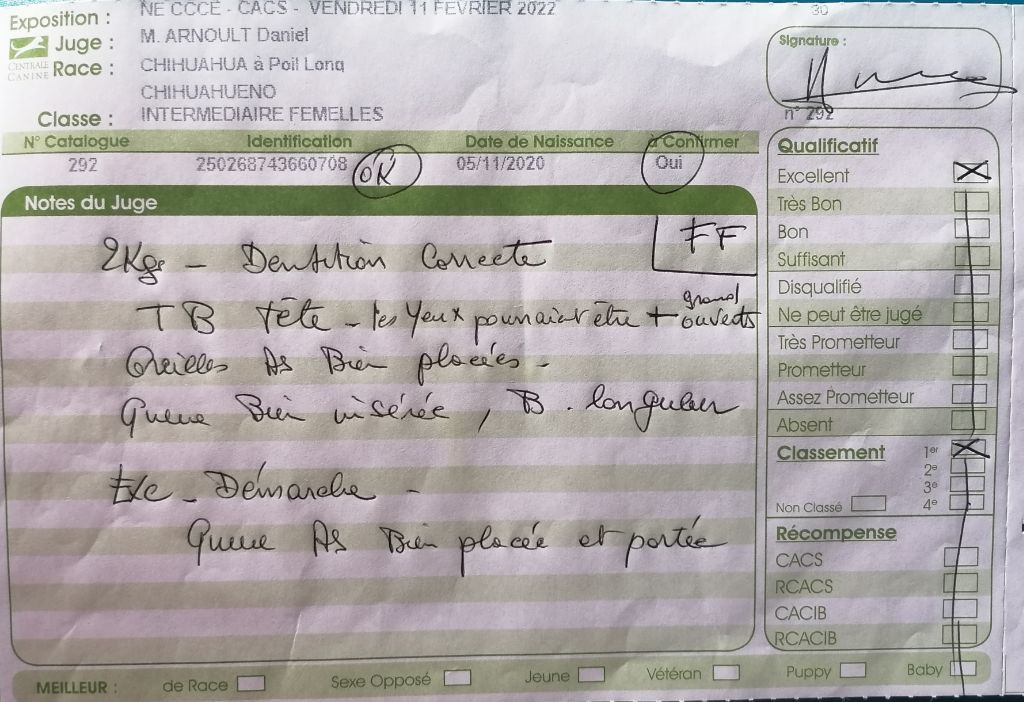 Exposition : NE CCCE - CACS - VENDREDI 11 FEVRIER 2022
30
Juge : M. ARNOULT Daniel
CENTRALE CANINE
Race : CHIHUAHUA à Poil Long
CHIHUAHUENO
Classe : INTERMEDIAIRE FEMELLES
Signature :
n° 292
N° Catalogue Identification Date de Naissance à Confirmer
292 250268743660708 OK 05/11/2020 Oui
Notes du Juge
FF
2Kgs - Dentition Correcte
TB Tête - les Yeux pourraient être + grand ouverts
Oreilles As Bien placées -
Queue Bien insérée, B. longueur
Exc - Démarche -
Queue As Bien placée et portée
Qualificatif
Excellent
Très Bon
Bon
Suffisant
Disqualifié
Ne peut être jugé
Très Prometteur
Prometteur
Assez Prometteur
Absent
Classement 1er
2e
3e
Non Classé 4e
Récompense
CACS
RCACS
CACIB
RCACIB
MEILLEUR : de Race Sexe Opposé Jeune Vétéran Puppy Baby